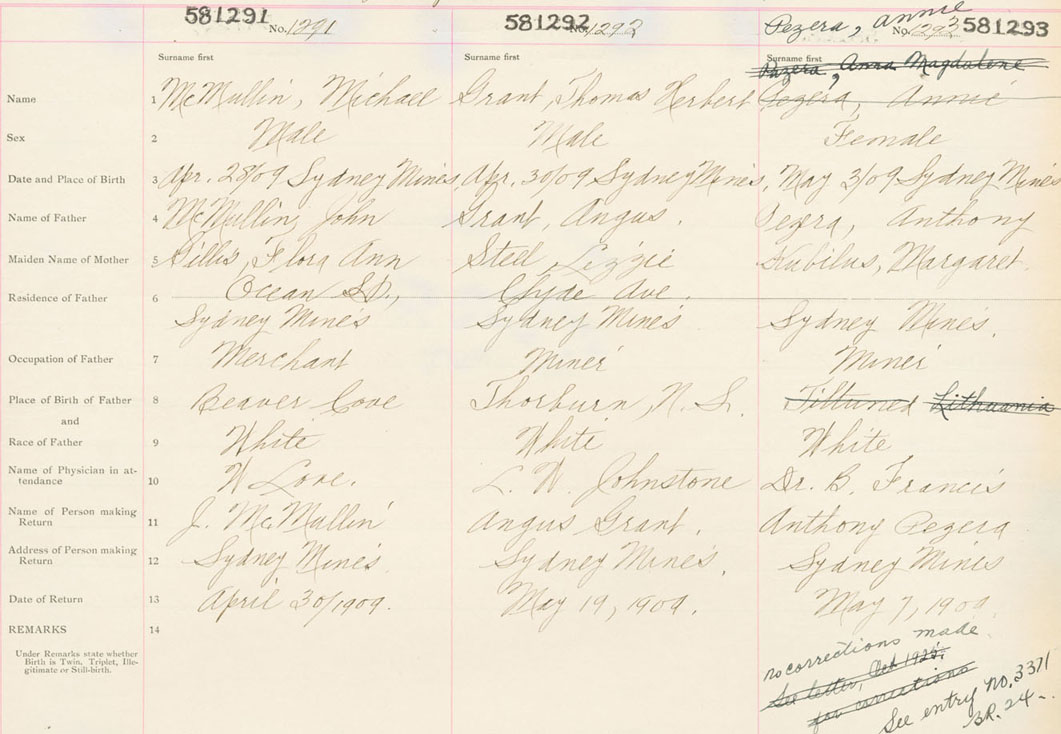 581291 No. 1291 581292 No. 1292 Pezera, Annie No. 1293 581293
Surname first Surname first Surname first
Pezera, Anna Magdalene
Name 1 McMullin, Michael Grant, Thomas Herbert Pezera, Annie
Sex 2 Male Male Female
Date and Place of Birth 3 Apr. 28/09 Sydney Mines, Apr. 30/09 Sydney Mines, May 3/09 Sydney Mines
Name of Father 4 McMullin, John Grant, Angus. Pezera, Anthony
Maiden Name of Mother 5 Gillis, Flora Ann Steel, Lizzie Kubilus, Margaret.
Residence of Father 6 Ocean St., Clyde Ave.
Sydney Mines Sydney Mines Sydney Mines.
Occupation of Father 7 Merchant Miner Miner
Place of Birth of Father 8 Beaver Cove Thorburn, N. S. Lithuania
and
Race of Father 9 White White White
Name of Physician in at-
tendance 10 W Love. L. W. Johnstone Dr. B. Francis
Name of Person making
Return 11 J. McMullin Angus Grant. Anthony Pezera
Address of Person making
Return 12 Sydney Mines Sydney Mines. Sydney Mines
Date of Return 13 April 30/1909. May 19, 1909. May 7, 1909
REMARKS 14
Under Remarks state whether
Birth is Twin. Triplet, Ille-
gitimate or Still-birth.
no corrections made
See letter, Oct 1925.
for corrections
See entry No. 3371
BR. 24